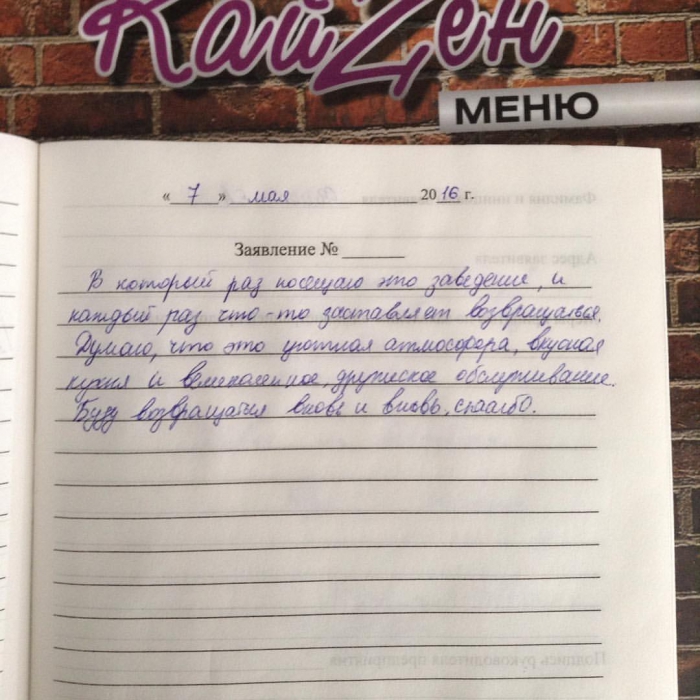 КайZен
МЕНЮ
« 7 » мая 2016 г.
Заявление №
В который раз посещаю это заведение, и
каждый раз что-то заставляет возвращаться.
Думаю, что это уютная атмосфера, вкусная
кухня и великолепное, дружеское обслуживание.
Буду возвращаться вновь и вновь, спасибо.